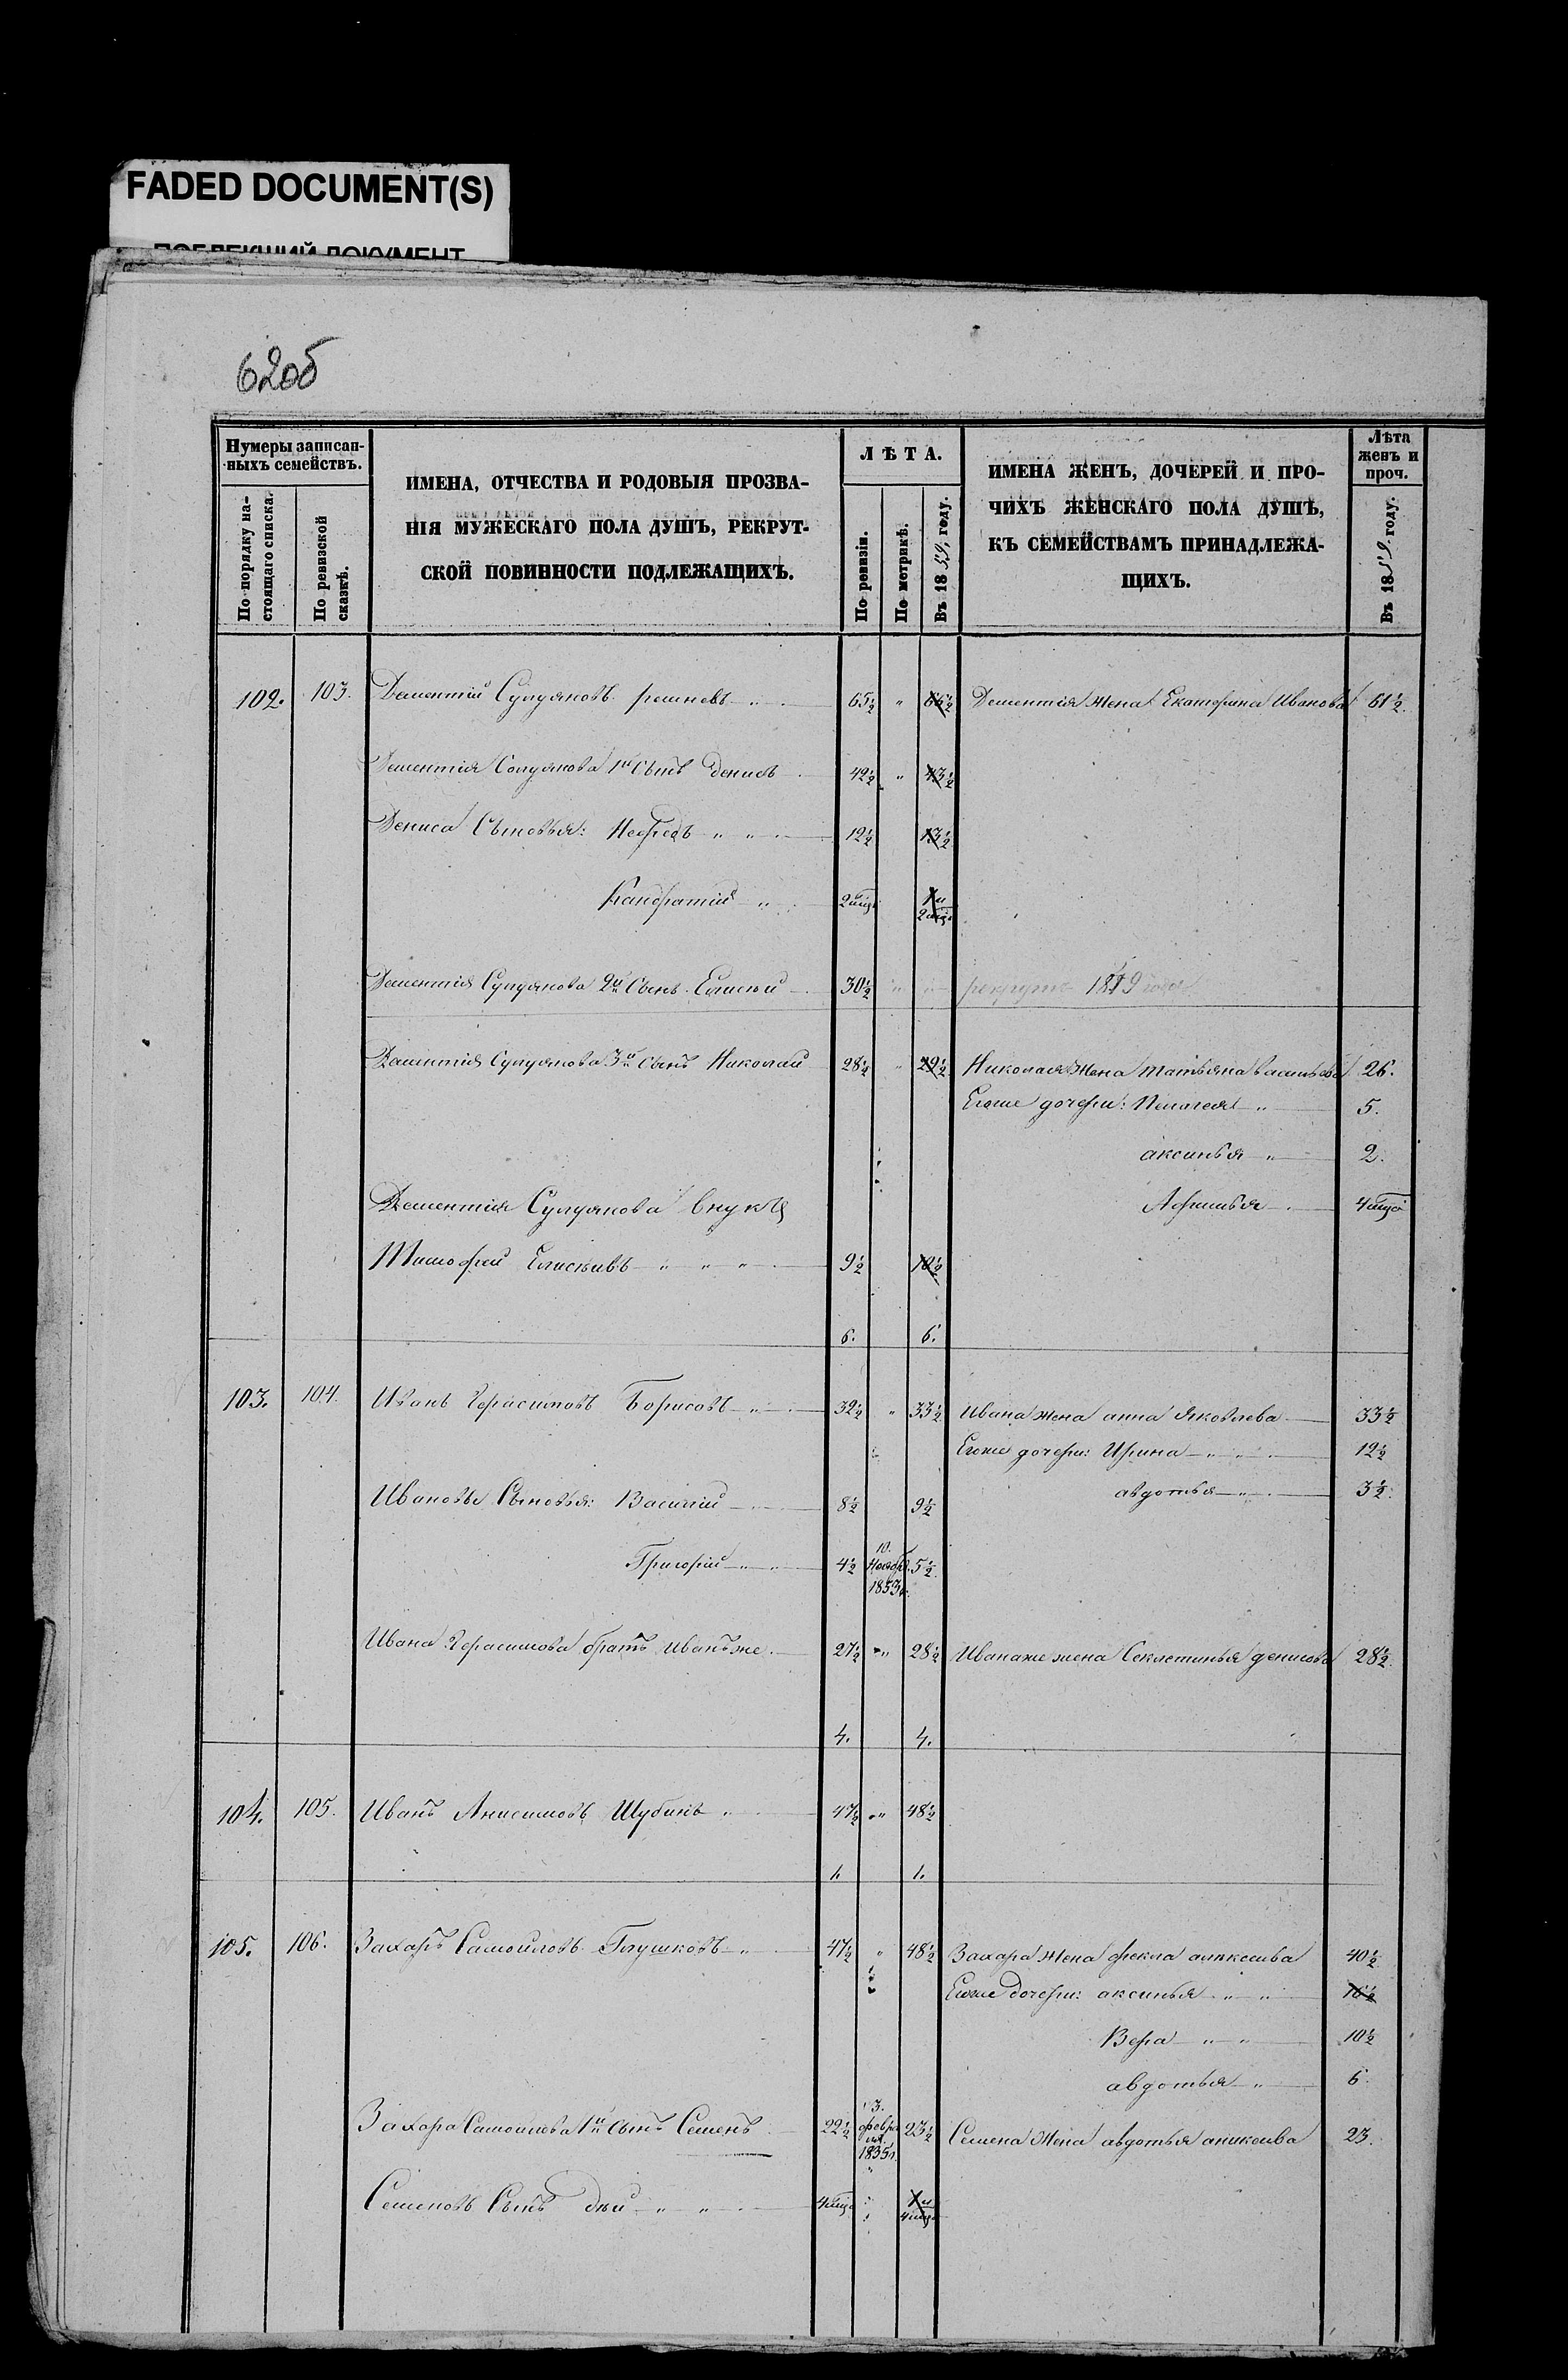 FADED DOCUMENT(S)
ПОБЛЕКШИЙ ДОКУМЕНТ
62об
Нумеры записан-
ныхъ семействъ.
По порядку на-
стоящаго списка.
По ревизской
сказкѣ.
ИМЕНА, ОТЧЕСТВА И РОДОВЫЯ ПРОЗВА-
НІЯ МУЖЕСКАГО ПОЛА ДУШЪ, РЕКРУТ-
СКОЙ ПОВИННОСТИ ПОДЛЕЖАЩИХЪ.
ЛѢТА.
По ревизіи.
По метрикѣ.
Въ 1859, году.
ИМЕНА ЖЕНЪ, ДОЧЕРЕЙ И ПРО-
ЧИХЪ ЖЕНСКАГО ПОЛА ДУШЪ,
КЪ СЕМЕЙСТВАМЪ ПРИНАДЛЕЖА-
ЩИХЪ.
Лѣта
женъ и
проч.
Въ 1859 году.
102. 103. Дементій 65½ " 66½ Дементія жена Екатерина Иванова 61½.
Дементія 1й Сынъ Денисъ 42½ " 43½
Дениса Сыновья: Нефедъ " " 12½ 13½
Кандратій " 2 мѣц. 1 и 2 мѣц.
Дементія 2й Сынъ Елисѣй 30½ " рекрутъ 1859 года
Дементія 3й Сынъ Николай 28½ " 29½ Николая жена татьяна васильева 26.
Егоже дочери: Пелагея " 5.
аксинья " 2.
Дементія внукъ Афимья 4 мѣц.
Тимофей Елисѣивъ " " " 9½ 10½
6. 6.
103. 104. Иванъ Герасимовъ Борисовъ " 32½ " 33½ Ивана жена анна Яковлева 33½
Егоже дочери: Ирина " " 12½
авдотья " 3½.
Ивановы Сыновья: Василій 8½ 9½
Григорій " 4½ 10. Ноябр. 1853г. 5½.
Ивана Герасимова братъ Иванъ же. 27½ " 28½ Иванаже жена Секлетинья денисова 28½.
4. 4.
104. 105. Иванъ Анисимовъ Шубинъ " 47½ " 48½
1. 1.
105. 106. Захаръ Самойловъ Глушковъ " 47½ " 48½ Захара жена фекла алексеива 40½
Егоже дочери: аксинья " " 16½
Вера " " 10½
авдотья " 6.
Захара Самойлова 1й Сынъ Семенъ 22½ 3. февраля 1835г. 23½ Семена Жена авдотья 23.
Семеновъ Сынъ " " 4 мѣц. 1 и 4 мѣц.